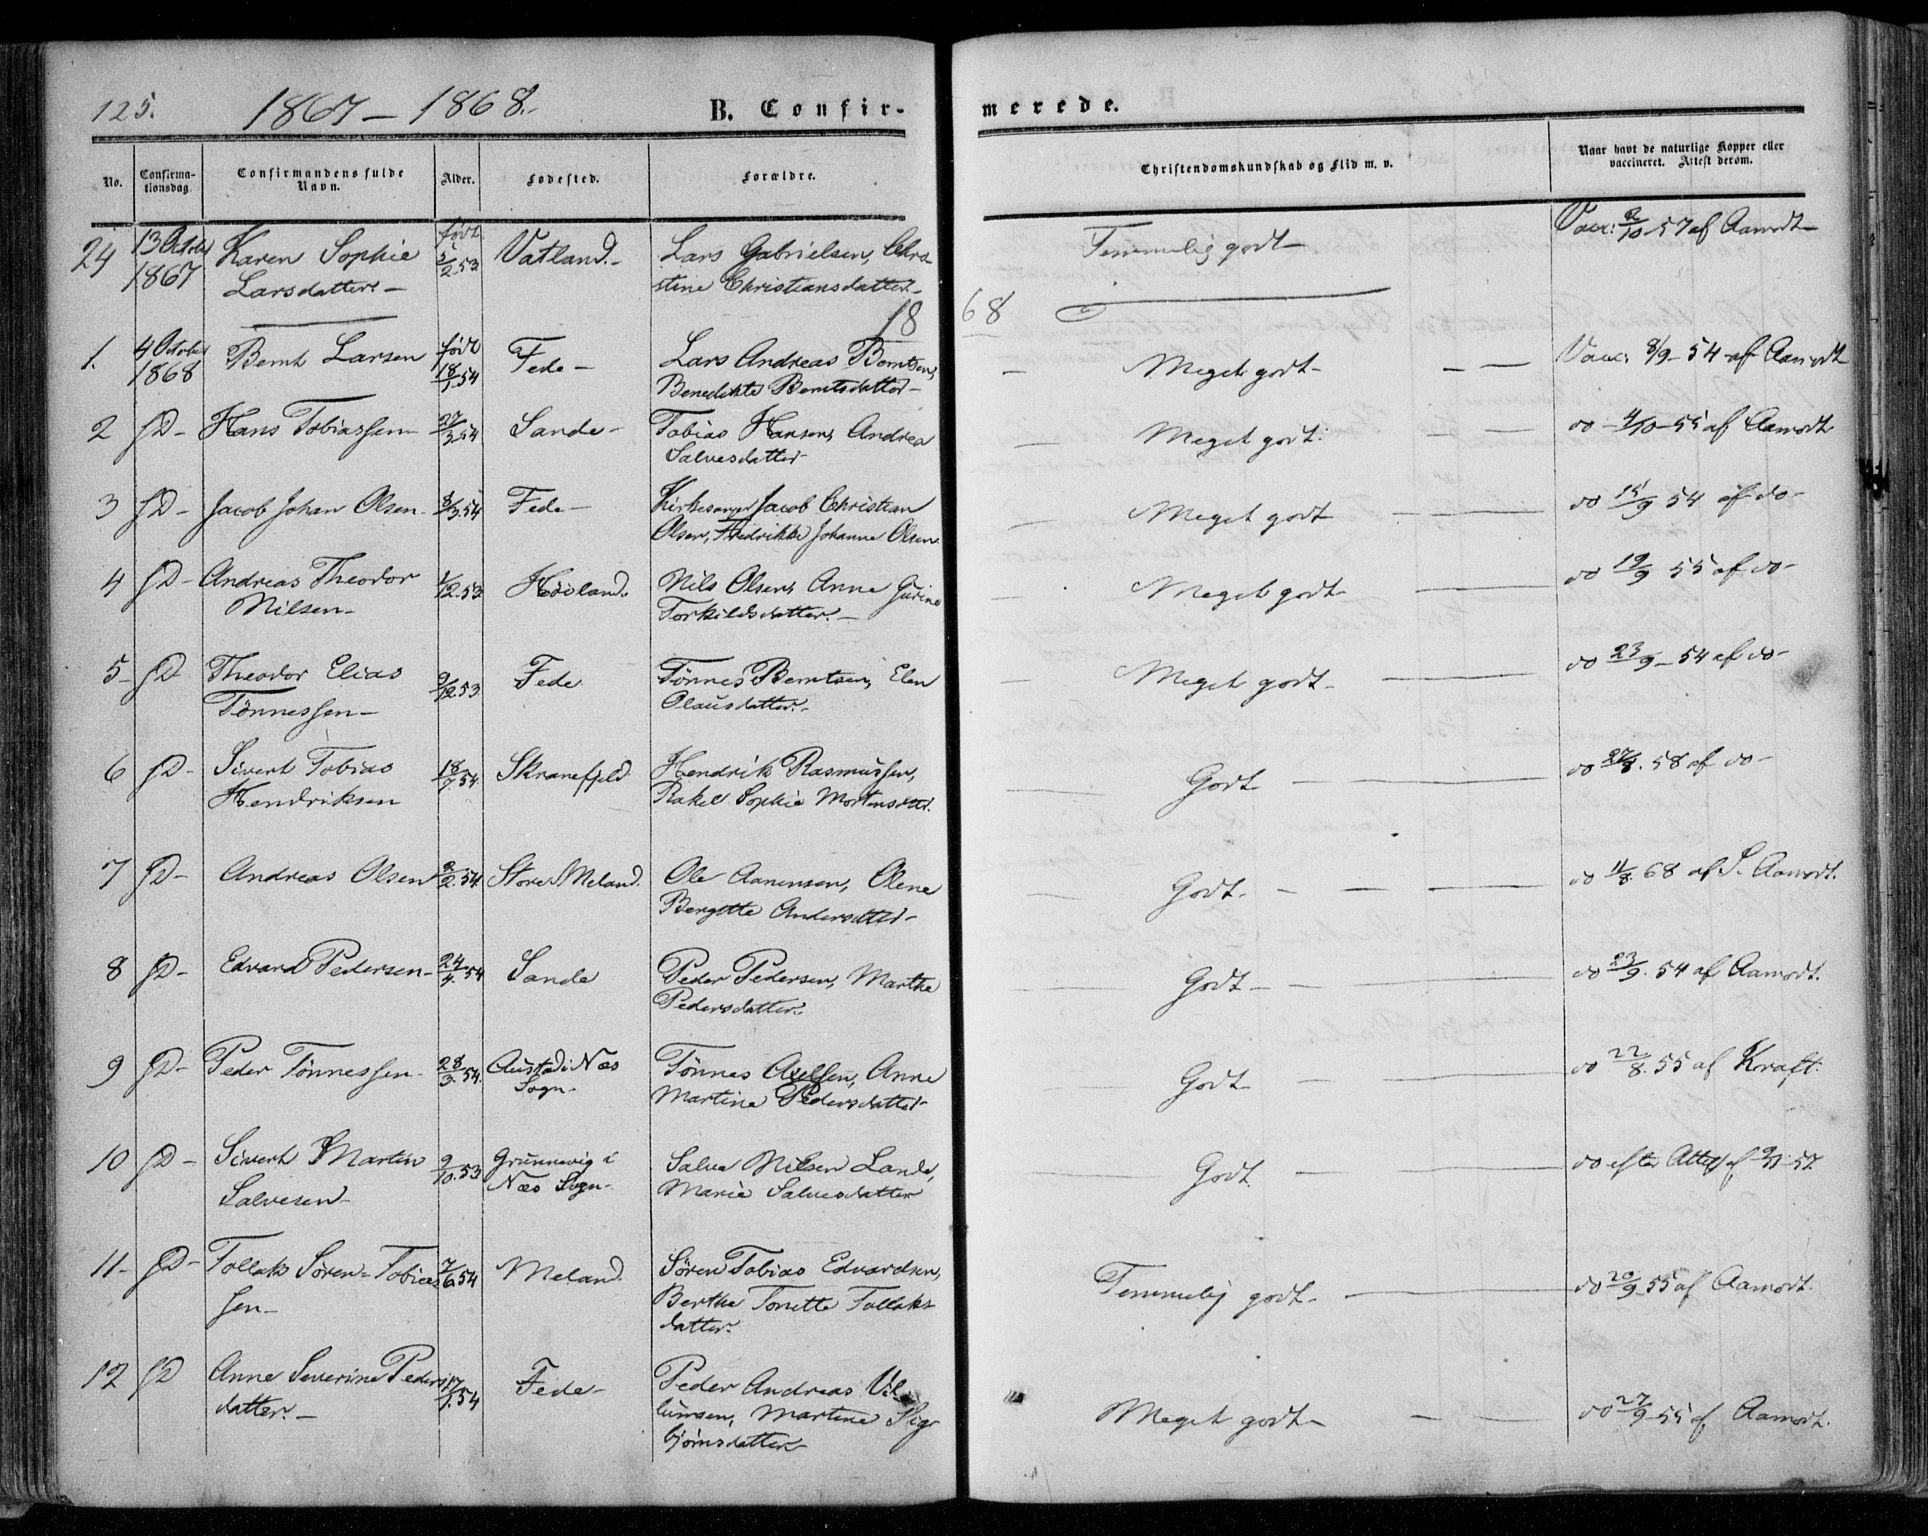 125.
1867 – 1868.
B. Confir-
merede.
No.
Confirma-
tionsdag.
Confirmandens fulde
Navn.
Alder.
Fødested.
Forældre.
Christendomskundskab og Flid m. v.
Naar havt de naturlige Kopper eller
vaccineret. Attest derom.
24 13 October 1867 Karen Sophie født 5/2.53 Vatland.– Lars Gabrielsen, Chri- Temmelig godt– Vacc: 2/10-57 af Aamodt–
Larsdatter.– stine Christiansdatter–
1868
1. 4 October 1868 Bernt Larsen født 18/1.54 Fede– Lars Andreas Berntsen, Meget godt– Vacc: 8/9-54 af Aamodt
Benedikte Berntsdatter–
2 D– Hans Tobiassen– 27/3.54 Sande– Tobias Hansen, Andrea Meget godt. do– 4/10-55 af Aamodt
Salvesdatter–
3 D– Jacob Johan Olsen– 8/3.54 Fede– Kirkesanger Jacob Christian Meget godt do 15/9 54 af do–
Olsen, Fredrikke Johanne Olsen
4 D– Andreas Theodor 1/12.53. Høiland. Nils Olsen, Anne Gurine Meget godt– do 19/9 55 af do–
Nilsen– Torkildsdatter.–
5– D– Theodor Elias 9/12.53 Fede Tønnes Berntsen, Elen Meget godt– do 23/9-54 af do–
Tønnessen– Olausdatter.–
6 D– Sivert Tobias 18/7.54. Skranefjeld. Hendrik Rasmussen, Godt do 27/8. 58 af do–
Hendriksen Rakel Sophie Mortensdatt.
7 D– Andreas Olsen 2/2.54. Store Meland. Ole Aanensen, Olene Godt.– do 11/8. 68 af S. Aamodt.
Bergitte Andersdatter–
8 D– Edvard Pedersen– 24/4.54 Sande Peder Pedersen, Marthe Godt– do 23/9. 54 af Aamodt.
Pedersdatter.
9 D– Peder Tønnessen– 28/3.54. Austad i Næs Tønnes Axelsen, Anne Godt do 22/8. 55 af Kraft.
Sogn– Martine Pedersdatter–
10 D– Sivert Martin 9/10.53 Grunnevig i Salve Nilsen Lande, Godt. do efter Attest af 9/11-57.
Salvesen– Næs Sogn– Marie Salvesdatter
11– D– Tollak Søren Tobias 7/6.54 Meland. Søren Tobias Edvardsen, Temmelig godt– do 20/9-55 af Aamodt.
sen– Berthe Tonette Tollaks
datter.
12 D Anne Severine Peders 17/7.54 Fede– Peder Andreas Vil Meget godt– do 27/9-55 af Aamodt.
datter.– lumsen, Martine Sig
bjørnsdatter–